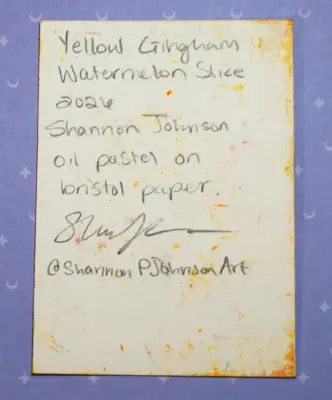 Yellow Gingham
Watermelon Slice
2026
Shannon Johnson
oil pastel on
bristol paper.
@Shannon PJohnson Art